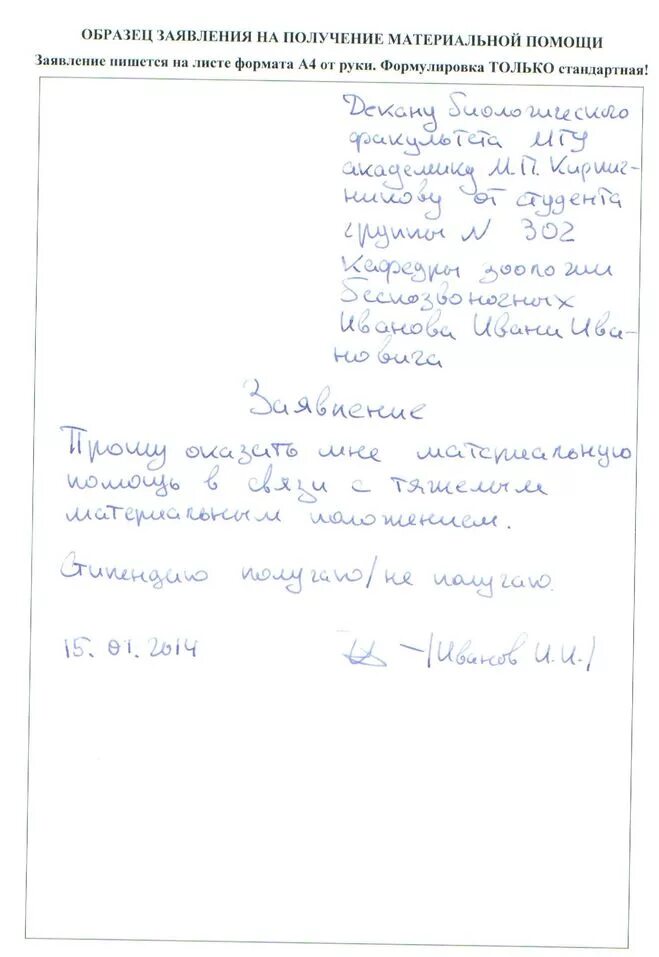 ОБРАЗЕЦ ЗАЯВЛЕНИЯ НА ПОЛУЧЕНИЕ МАТЕРИАЛЬНОЙ ПОМОЩИ
Заявление пишется на листе формата А4 от руки. Формулировка ТОЛЬКО стандартная!
Декану биологического
факультета МГУ
академику М.П. Кирпич-
никову от студента
группы N 302
Кафедры зоологии
беспозвоночных
Иванова Ивана Ива-
новича
Заявление
Прошу оказать мне материальную
помощь в связи с тяжелым
материальным положением.
Стипендию получаю/не получаю.
15.01.2014 /Иванов И.И./